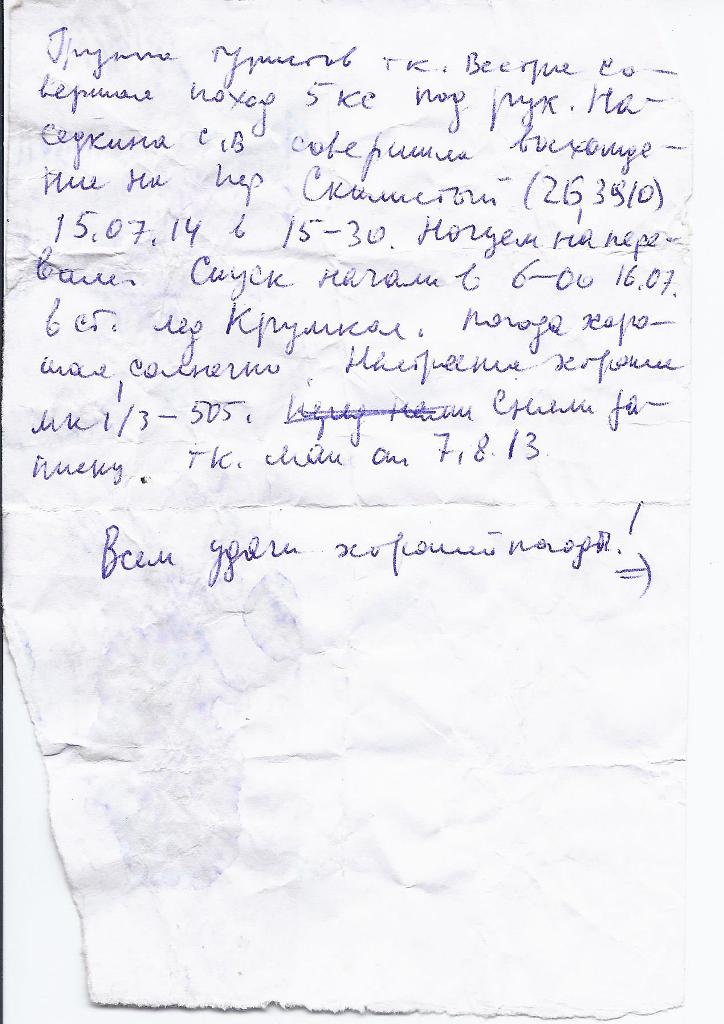 Группа туристов тк. Вестра со-
вершая поход 5 кс под рук. На-
седкина С.В совершила восхожде-
ние на пер Скалистый (2Б, 3910)
15.07.14 в 15-30. Ночуем на пере-
вале. Спуск начали в 6-00 16.07.
в ст. лед Крумкол. Погода хоро-
шая, солнечно. Настроение хорошее
мк 1/3-505. Сняли за-
писку. тк. МАИ от 7.8.13.
Всем удачи хорошей погоды! =)